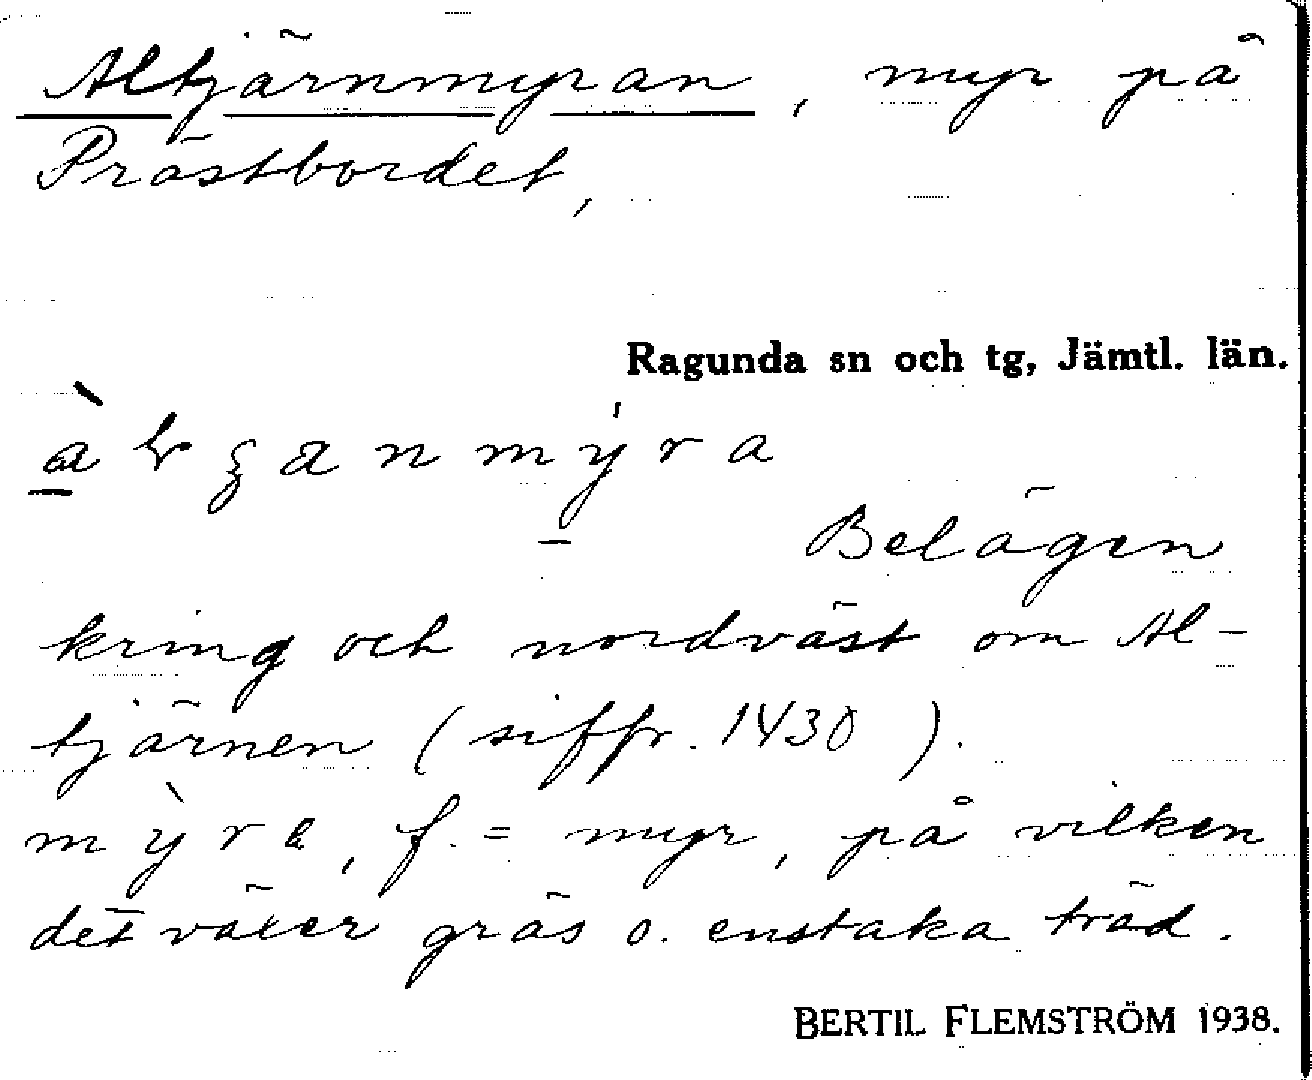 Altjärnmyran, myr på
Prästbordet,
Ragunda sn och tg, Jämtl. län.
Belägen
kring och nordväst om Al-
tjärnen (siffr. 1430 ).
f. = myr, på vilken
det växer gräs o. enstaka träd.
BERTIL FLEMSTRÖM 1938.